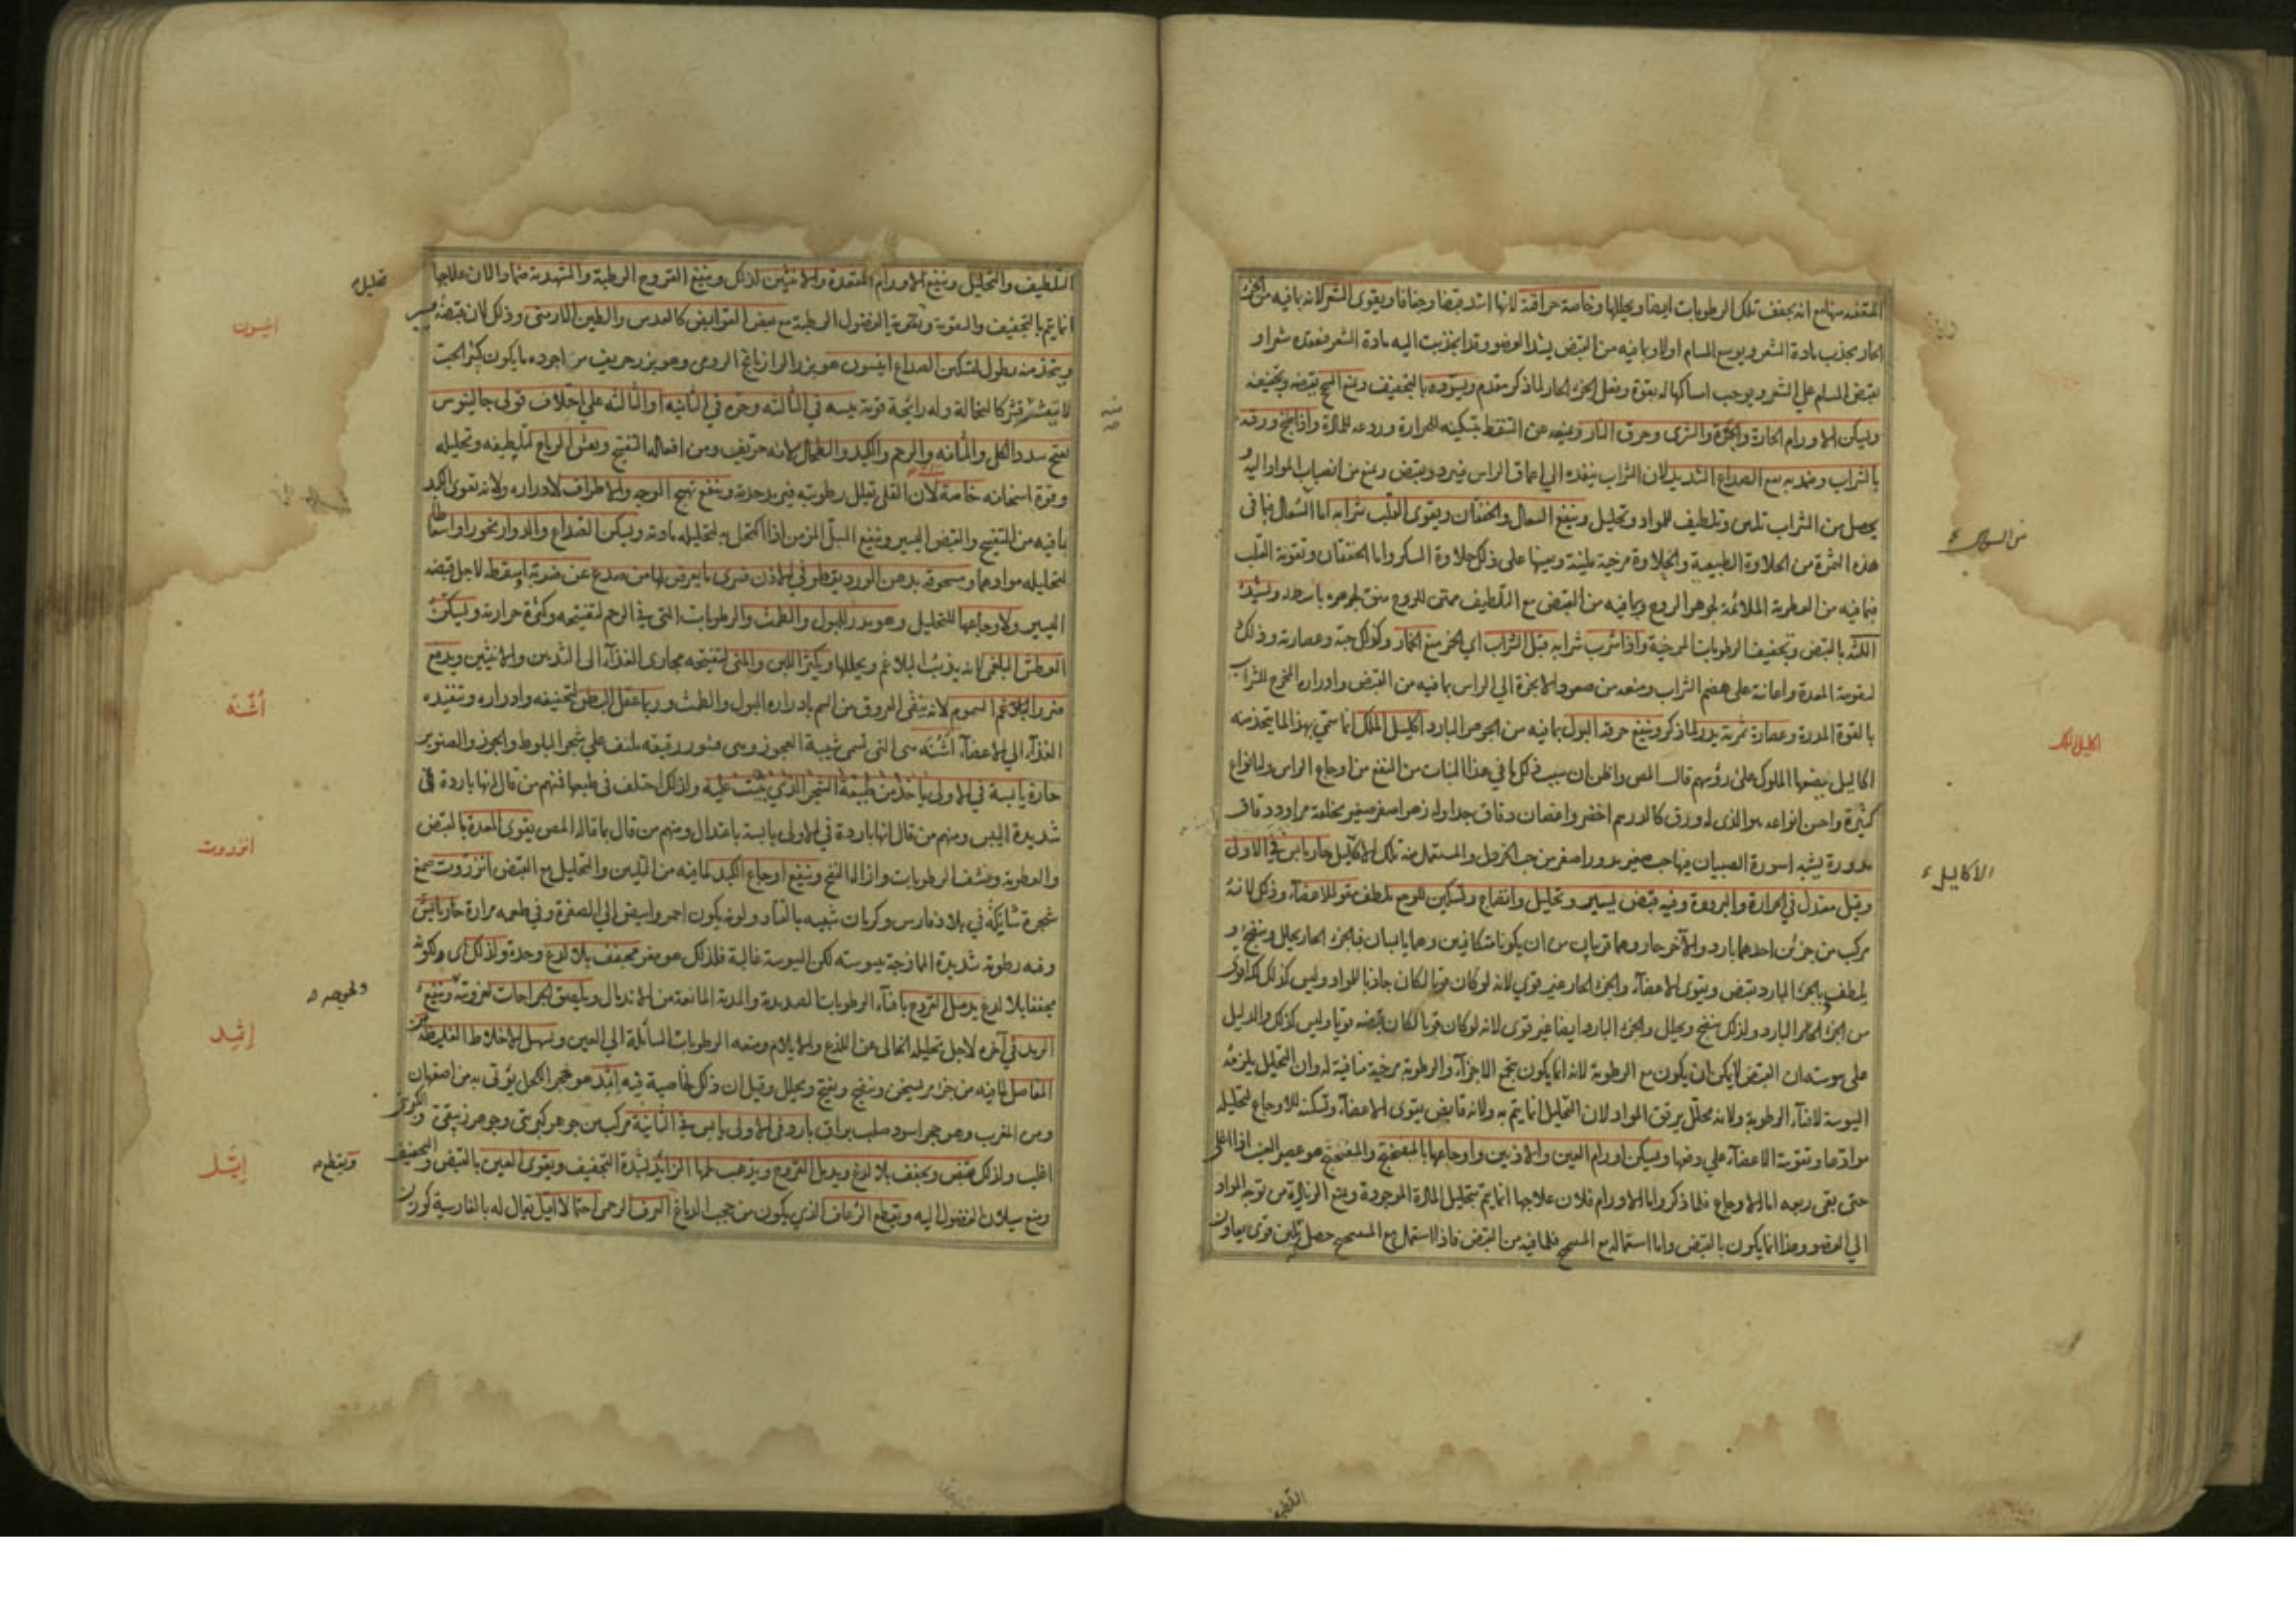 المتعفنه منها مع انه يجفف تلك الرطوبات ايضا ويحللها وخاصة حراقته لانها اشد قبضا وجفافا ويقوى الشعر لانه بما فيه من الجزء
الحار يجذب مادة الشعر ويوسع المسام اولا وبما فيه من القبض يشد العضو وقد انجذبت اليه مادة الشعر فتعقده شعرا و
بقبض المسام على الشعر ويوجب امساكها له بقوة وبفعل الجزء الحار لما ذكر متقدم ويسوده بالتجفيف ويمنع السحج بقبضه وتجفيفه
ويسكن الاورام الحارة والحمرة والشرى وحرق النار ويمنعه عن التنفط بتسكينه للحرارة وردعه للمادة واذا طبخ ورقه
بالشراب وضمد به نفع الصداع الشديد لان الشراب ينفذه الى اعماق الراس فيبرد ويقبض ويمنع من انصباب المواد اليه و
يحصل من الشراب تليين وتلطيف للمواد وتحليل وينفع السعال والخفقان ويقوى القلب شرابه اما السعال فبما فى
هذه الثمرة من الحلاوة الطبيعية والحلاوة مرخية ملينة ويعينها على ذلك حلاوة السكر واما الخفقان وتقوية القلب
فبما فيه من العطرية الملائمة لجوهر الروح وبما فيه من القبض مع التلطيف ممتن للروح منق لجوهره باسط له ويشد
اللثة بالقبض وتجفيف الرطوبات المرخية واذا شرب شرابه قبل الشراب اى الخمر منع الخمار وكذلك حبه وعصارته وذلك
لتقويته المعدة واعانته على هضم الشراب ومنعه من صعود الابخرة الى الراس بما فيه من القبض وادراره المخرج للشراب
بالقوة المدرة وعصارة ثمرته يدر لما ذكر وينفع حرقة البول بما فيه من الجوهر البارد اكليل الملك انما سمي بهذا لما يتخذ منه
اكاليل يضعها الملوك على رؤسهم قال المص واظن ان سبب ذلك ما في هذا النبات من النفع من اوجاع الراس وله انواع
كثيرة واحسن انواعه هو الذى له ورق كالدرهم اخضر واغصان دقاق جدا وله زهر اصفر صغير يخلفه مزاود دقاق
مدورة يشبه اسورة الصبيان فيها حب صغير مدور اصغر من حب الخردل والمستعمل منه تلك الاكاليل حار يابس في الاولى
وقيل معتدل في الحرارة والبرودة وفيه قبض يسير وتحليل وانضاج وتسكين للوجع ملطف مقو للاعضاء وذلك لانه
مركب من جزئين احدهما بارد والآخر حار وهما قريبان من ان يكونا متكافيين وهما يابسان فبالجزء الحار يحلل وينضج و
يلطف وبالجزء البارد يقبض ويقوى الاعضاء والجزء الحار غير قوي لانه لو كان قويا لكان جاذبا للمواد وليس كذلك
من الجزء البارد ولذلك ينضج ويحلل والجزء البارد ايضا غير قوى لانه لو كان قويا لكان قبضه قويا وليس كذلك والدليل
على يبوسته ان القبض لا يمكن ان يكون مع الرطوبة لانه انما يكون بجمع الاجزاء والرطوبة مرخية منافية له وان التحليل يلزمه
اليبوسة لافناء الرطوبة ولانه محلل يرقق المواد لان التحليل انما يتم به ولانه قابض يقوى الاعضاء وتسكينه للاوجاع لتحليله
موادها وتقويته الاعضاء على دفعها ويسكن اورام العين والاذنين واوجاعها بالميفختج والميفختج هو عصير العنب اذا اغلى
حتى بقى ربعه اما الاوجاع فلما ذكر واما الاورام فلان علاجها انما يتم بتحليل المادة الموجودة ومنع الزيادة من توجه المواد
الي العضو وهذا انما يكون بالقبض واما استعماله مع الميفختج فلما فيه من القبض فاذا استعمل مع الميفختج حصل تليين قوى يعاون
من السواك
اكليل الملك
الاكاليل
التلطيف
التلطيف والتحليل وينفع الاورام المقعدة والانثيين لذلك وينفع القروح الرطبة والشهدية ضمادا لان علاجها
انما يتم بالتجفيف والتقوية وتنقية الفضول الرطبة مع بعض القوابض كالعدس والطين الارمني وذلك لان قبضه يسير
ويتخذ منه نطول لتسكين الصداع انيسون هو بزر الرازيانج الرومى وهو بزر حريف من اجوده ما يكون كثير الحب
لا يتقشر قشر كالنخالة وله رائحة قوية يبسه في الثالثة وحره في الثانية او الثالثة على اختلاف قولى جالينوس
يفتح سدد الكلى والمثانة والرحم والكبد والطحال لانه حريف ومن افعاله التفتيح ويفش الرياح لتلطيفه وتحليله
وقوة اسخانه خاصة لان القلى يقلل رطوبته فيزيد حدته وينفع تهيج الوجه والاطراف لادراره ولانه يقوى الكبد
بما فيه من التفتيح والقبض اليسير وينفع السبل المزمن اذا اكتحل به لتحليله مادته ويسكن الصداع والدوار بخورا واستعاطا
لتحليله موادهما ومسحوقه بدهن الورد يقطر في الاذن فيبرئ ما يعرض لها من صدع عن ضربة او سقطة لاجل قبضه
اليسير ولاوجاعها للتحليل وهو يدر البول والطمث والرطوبات التى في الرحم لتفتيحه وكثرة حرارته ويسكن
العطش البلغمى لانه يذيب البلاغم ويحللها ويكثر اللبن والمنى لتفتيحه مجارى الغذاء الى الثديين والانثيين ويدفع
ضرر السموم لانه ينقى العروق من السم بادراره البول والطمث وربما عقل البطن لتجفيفه وادراره وتنفيذه
الغذاء الي الاعضاء اشنه هى التى تسمى شيبة العجوز وهى قشور رقيقه تلتف على شجر البلوط والجوز والصنوبر
حارة يابسة في الاولى ياخذ من طبيعة الشجر الذي ينبت عليه ولذلك اختلف فى طبعها فمنهم من قال انها باردة فى
شديدة اليبس ومنهم من قال انها باردة في الاولى يابسة باعتدال ومنهم من قال بما قاله المص يقوى المعدة بالقبض
والعطرية ونشف الرطوبات وازالة النفخ وينفع اوجاع الكبد لما فيه من التليين والتحليل مع القبض انزروت صمغ
شجرة شايكة في بلاد فارس وكريات شبيه بالقتاد ولونه يكون احمر وابيض الى الصفرة وفي طعمه مرارة حار يابس
وفيه رطوبة شديدة الممازجة بيبوسته لكن اليبوسة غالبة فلذلك هو مغر مجفف بلا لدغ وحدة ولذلك اى ولكونه
مجففا بلا لدغ يدمل القروح بافناء الرطوبات الصديدية والمدية المانعة من الاندمال ويلصق الجراحات لغرويته وينفع
الرمد في آخره لاجل تحليله الخالى عن اللذع والايلام ومنعه الرطوبات السائلة الي العين ويسهل الاخلاط الغليظة من
المفاصل لما فيه من جزء مر يسخن وينضج ويفتح ويحلل وقيل ان ذلك لخاصية فيه اثمد هو حجر الكحل يؤتى به من اصفهان
ومن المغرب وهو حجر اسود صلب براق بارد في الاولى يابس في الثانية مركب من جوهر كبريتى وجوهر زيبقى والكبريتى
اغلب ولذلك يقبض ويجفف بلا لدغ ويدمل القروح ويذهب لحمها الزايد لشدة التجفيف ويقوى العين بالقبض والتجفيف
ويمنع سيلان الفضول اليه ويقطع الرعاف الذي يكون من حجب الدماغ النزف الرحمى احتمالا ايل يقال له بالفارسية كوزن
تحليله
انيسون
أشنة
انزروت
ولحوجه
إثمد
ويقطع
إيل